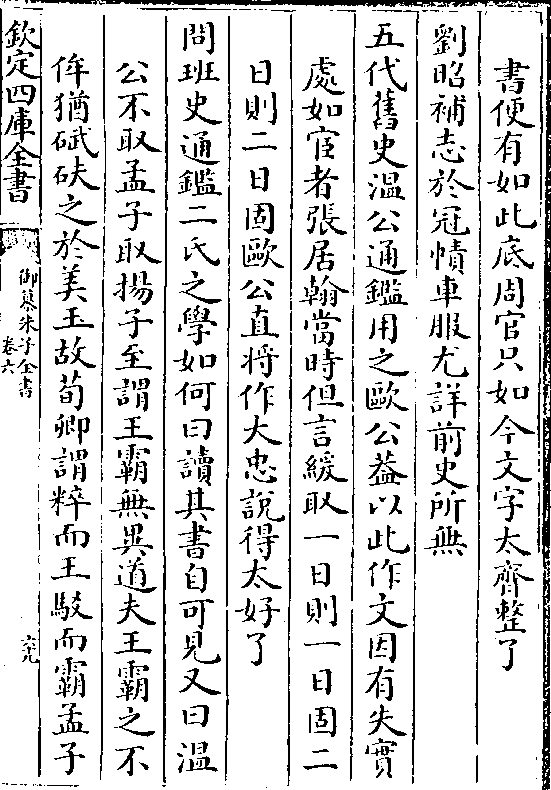 書便有如此底周官只如今文字太齊整了
劉昭補志於冠幘車服尤詳前史所無
五代舊史溫公通鑑用之歐公蓋以此作文因有失實
處如宦者張居翰當時但言緩取一日則一日固二
日則二日固歐公直將作大忠說得太好了
問班史通鑑二氏之學如何曰讀其書自可見又曰溫
公不取孟子取揚子至謂王霸無異道夫王霸之不
侔猶碔砆之於美玉故荀卿謂粹而王駁而霸孟子
欽定四庫全書
御纂朱子全書
卷六
六九